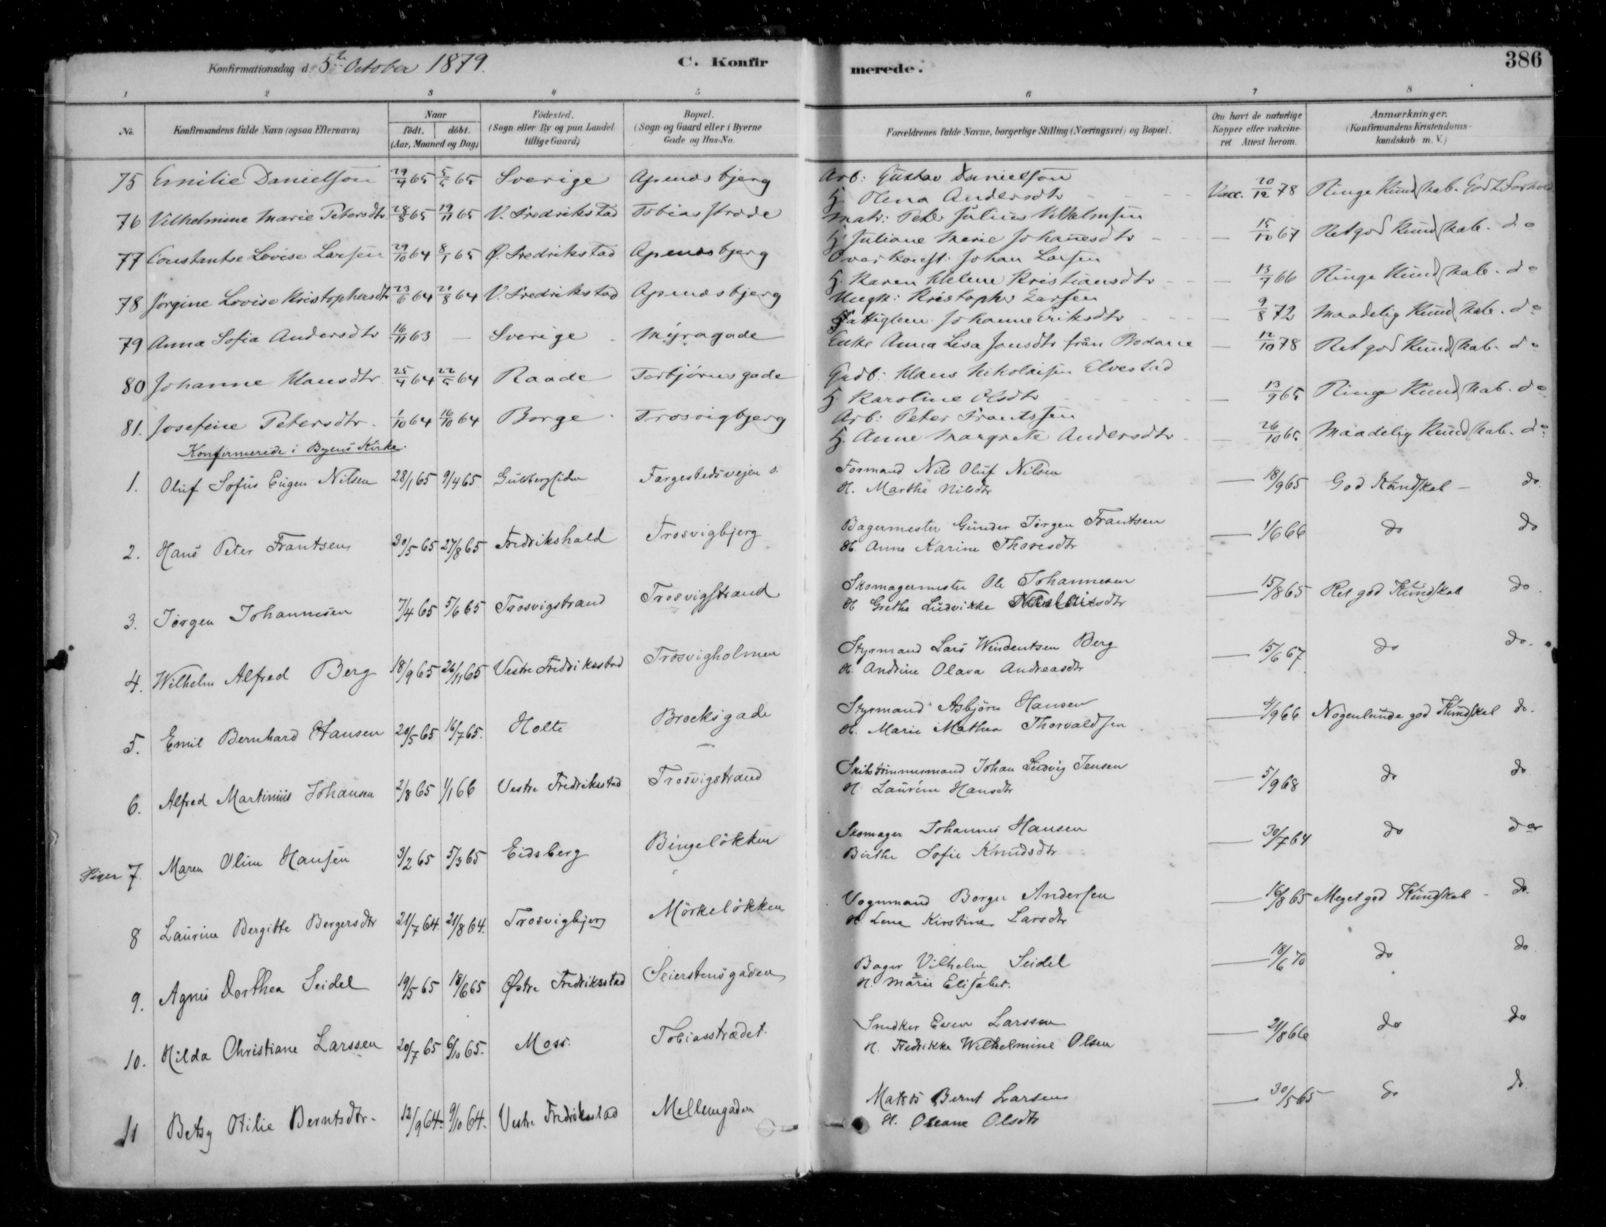 Konfirmationsdag d. 5te October 1879. C. Konfirmerede. 386
1 2 3 4 5 6 7 8
No. Konfirmandens fulde Navn (ogsaa Efternavn) Naar født. døbt. (Aar, Maaned og Dag) Fødested. (Sogn eller By og paa Landet tillige Gaard) Bopæl. (Sogn og Gaard eller i Byerne Gade og Hus-No. Forældrenes fulde Navne, borgerlige Stilling (Næringsvei) og Bopæl. Om havt de naturlige Kopper eller vakcineret Attest herom. Anmærkninger. (Konfirmandens Kristendomskundskab m. V.)
75 Emilie Danielsen 65 65 Sverige Apenæsbjerg Arb: Gustav Danielsen
H. Olena Andersdtr Vacc. 20/12 78 Ringe Kundskab. God Forhold
76 Vilhelmine Marie Petersdtr 28/8 65 19/11 65 V. Fredrikstad Tobiasstræde Matr: Peter Julius Vilhelmsen
H. Juliane Marie Johanesdtr — 15/10 67 Ret god Kundskab. do
77 Constantse Lovise Larsen 29/10 64 8/1 65 Ø. Fredrikstad Apenæsbjerg Johan Larsen
H. Karen Helene Kristiansdtr — 66 Ringe Kundskab. do
78 Jørgine Lovise Kristophersdtr 23/6 64 21/8 64 V. Fredrikstad Apenæsbjerg Kristopher Larsen
Johanne Eriksdtr — 9/8 72 Maadelig Kundskab. do
79 Anna Sofia Andersdtr 16/11 63 — Sverige Myragade Enke Anna Lisa Jonsdtr från Bodane — 12/10 78 Ret god Kundskab. do
80 Johanne Klausdtr 25/4 64 22/5 64 Raade Torbjørnsgade Gbdb: Klaus Nikolaisen Elvestad
H. Karoline Olsdtr — 13/9 65 Ringe Kundskab. do
81. Josefine Petersdtr. 1/10 64 16/10 64 Borge Trosvigbjerg Arb: Peter Frantssen
H. Anne Margrete Andersdtr — 26/10 65 Maadelig Kundskab. do
Konfirmerede i Byens Kirke.
1. Oluf Sofus Eugen Nilsen 28/1 65 9/4 65 Gulbergsiden Fargestedsveien Formand Nils Oluf Nilsen
H. Marthe Nilsdtr — 18/9 65 God Kundskab — do
2. Hans Peter Frantsen 30/5 65 27/8 65 Fredrikshald Trosvigbjerg Bagermester Gunder Jørgen Frantsen
H. Anne Karine Thoresdtr — 1/6 66 do do
3. Jørgen Johannesen 7/4 65 5/6 65 Trosvigstrand Trosvigstrand Skomagermester Ole Johannesen
H. Grethe Ludvikke — 15/8 65 Ret god Kundskab do.
4. Wilhelm Alfred Berg 18/9 65 26/11 65 Vestre Fredriksstad Trosvigholmen Styrmand Lars Berg
H. Andrine Olava Andreasdtr — 15/6 67 do do.
5. Emil Bernhard Hansen 20/5 65 16/7 65. Holte Brochsgade Styrmand Asbjørn Hansen
H. Marie Mathea Thorvaldsen — 4/9 66 Nogenlunde god Kundskab do.
6. Alfred Martinius Johansen 2/8 65 1/1 66 Vestre Fredriksstad Trosvigstrand Skibstømmermand Johan Ludvig Jensen
H. Laurine Hansdtr — 5/9 68 do do
Piger 7 Maren Oline Hansen 3/2 65 5/3 65 Eidsberg Bingeløkken Skomager Johannes Hansen
Birthe Sofie Knudsdtr — 30/7 64 do do
8 Laurine Bergitte Bergersdtr 21/7 64 21/8 64. Trosvigbjerg Mørkeløkken Vognmand Borger Andersen
H. Lene Kirstine Larsdtr — 16/8 65 Meget god Kundskab — do.
9. Agnes Dorthea Seidel 19/5 65 18/6 65 Østre Fredriksstad Seierstensgaden Bager Vilhelm Seidel
H. Marie Elisabet. — 18/6 70 do do
10. Hilda Christiane Larssen 20/7 65 6/10 65. Moss. Tobiasstrædet. Snedker Even Larssen
H. Fredrikke Wilhelmine Olsen — 21/8 66 do do
11 Betsy Otilie Berntsdtr. 12/9 64. 9/10 64. Vestre Fredriksstad Mellemgaden Matros Bernt Larsen
H. Oleane Olsdtr — 30/5 65 do do.